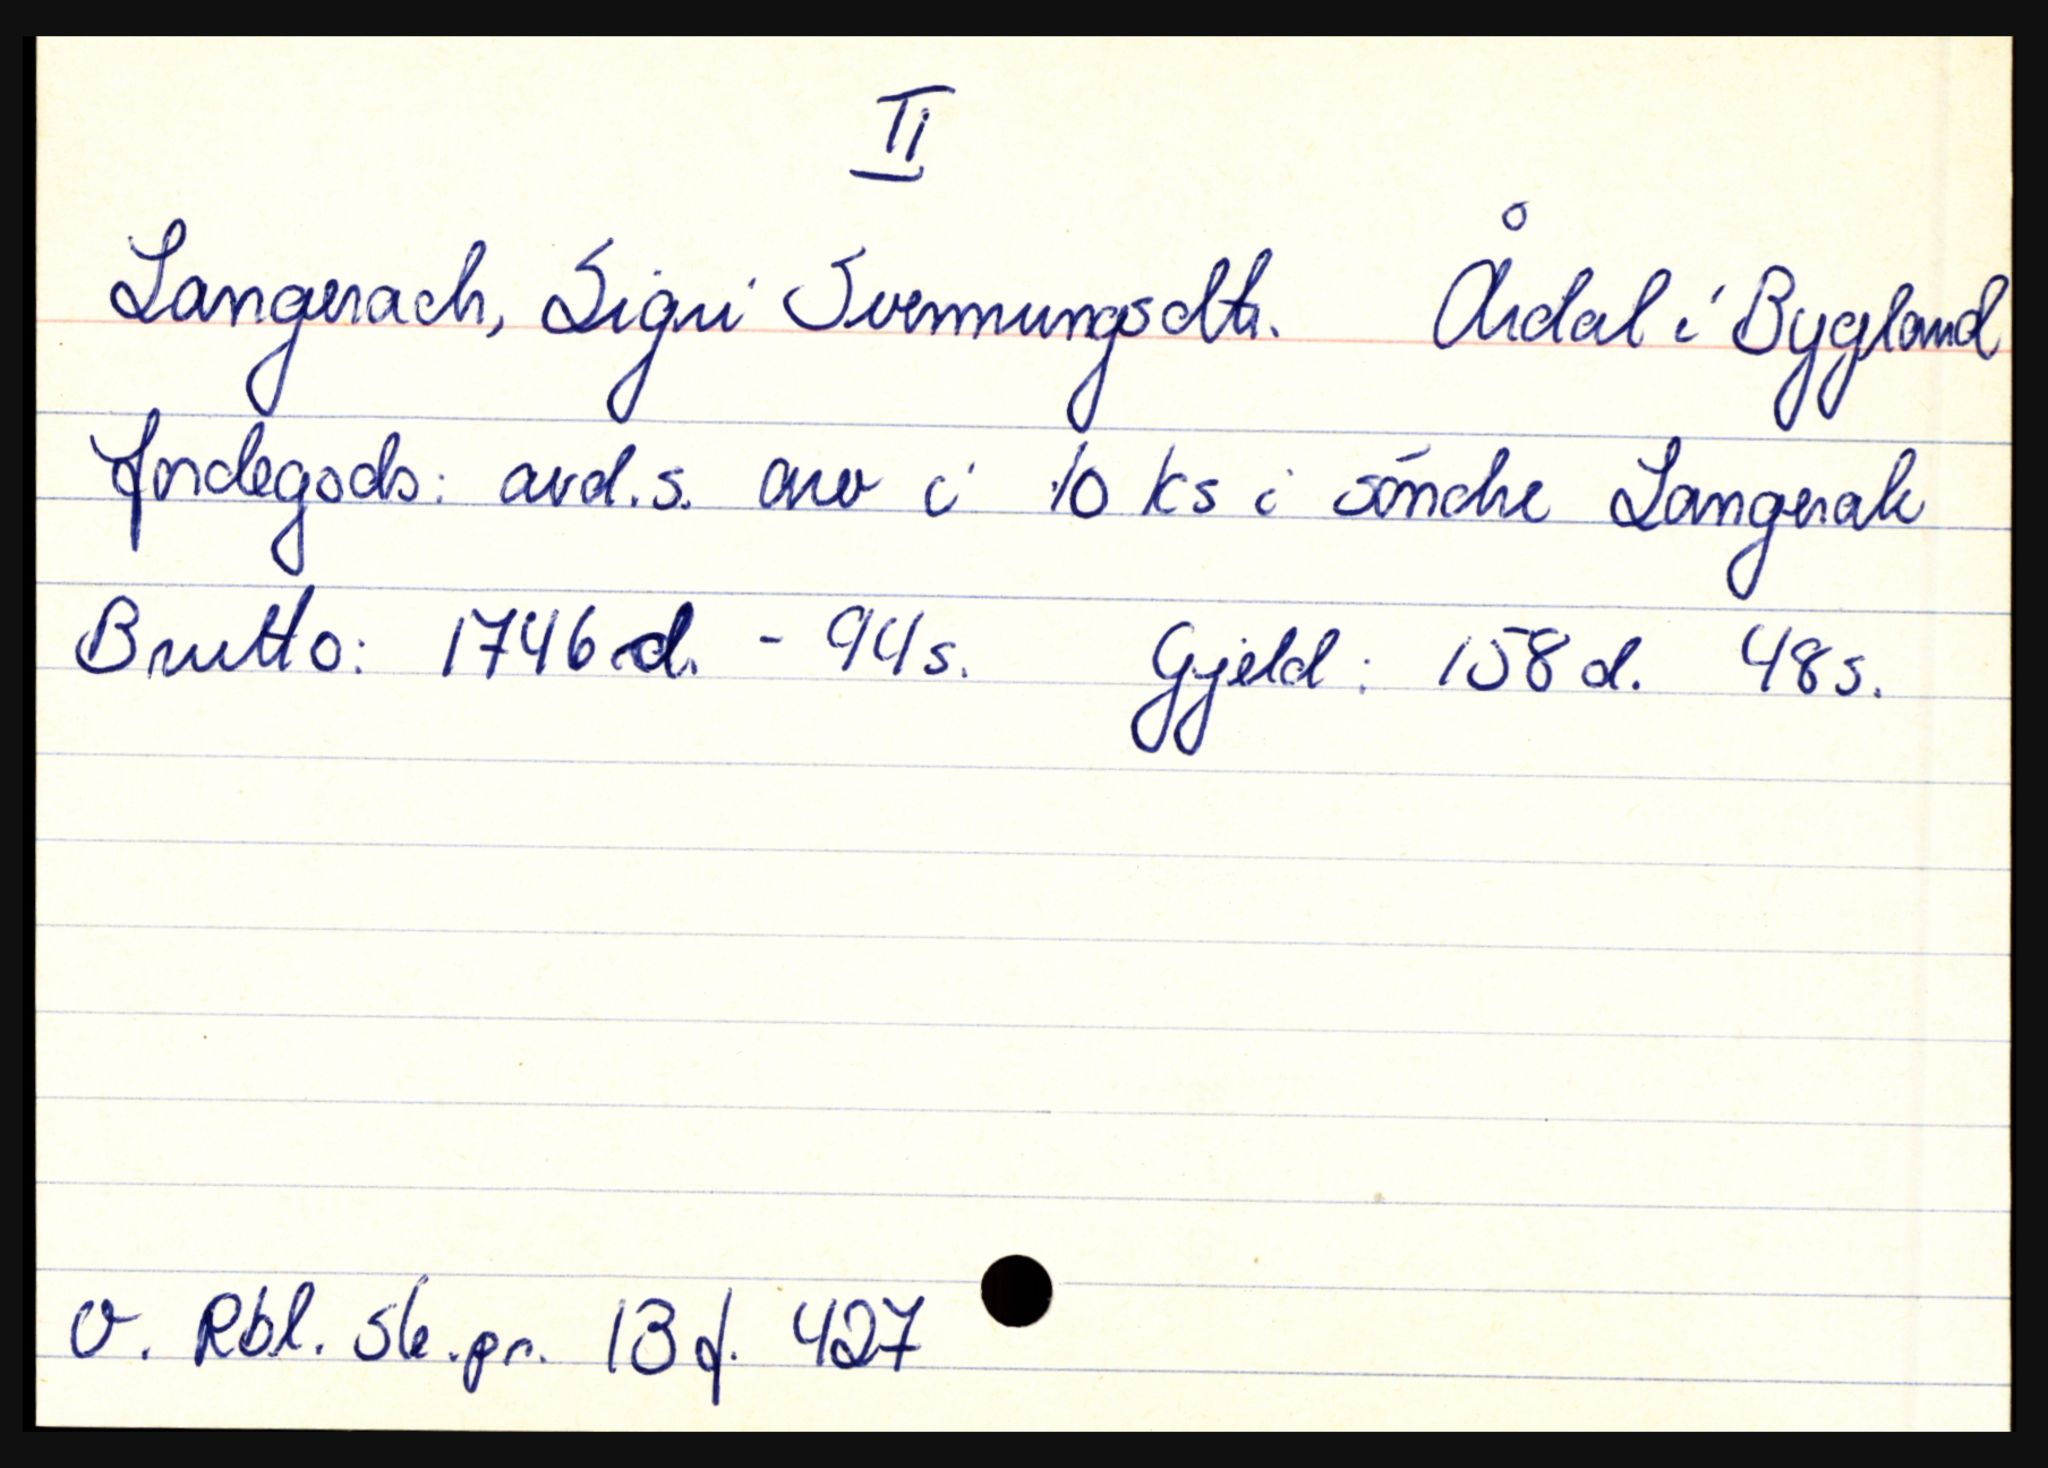 II
Langerach, Sigri Svennungsdtr. Årdal i Bygland
Jordegods: avd.s. arv i 10 ks i søndre Langerak
Brutto: 1746 d. - 94 s. Gjeld: 158 d. 48 s.
V. Rbl. sk.pr. 13 f. 427